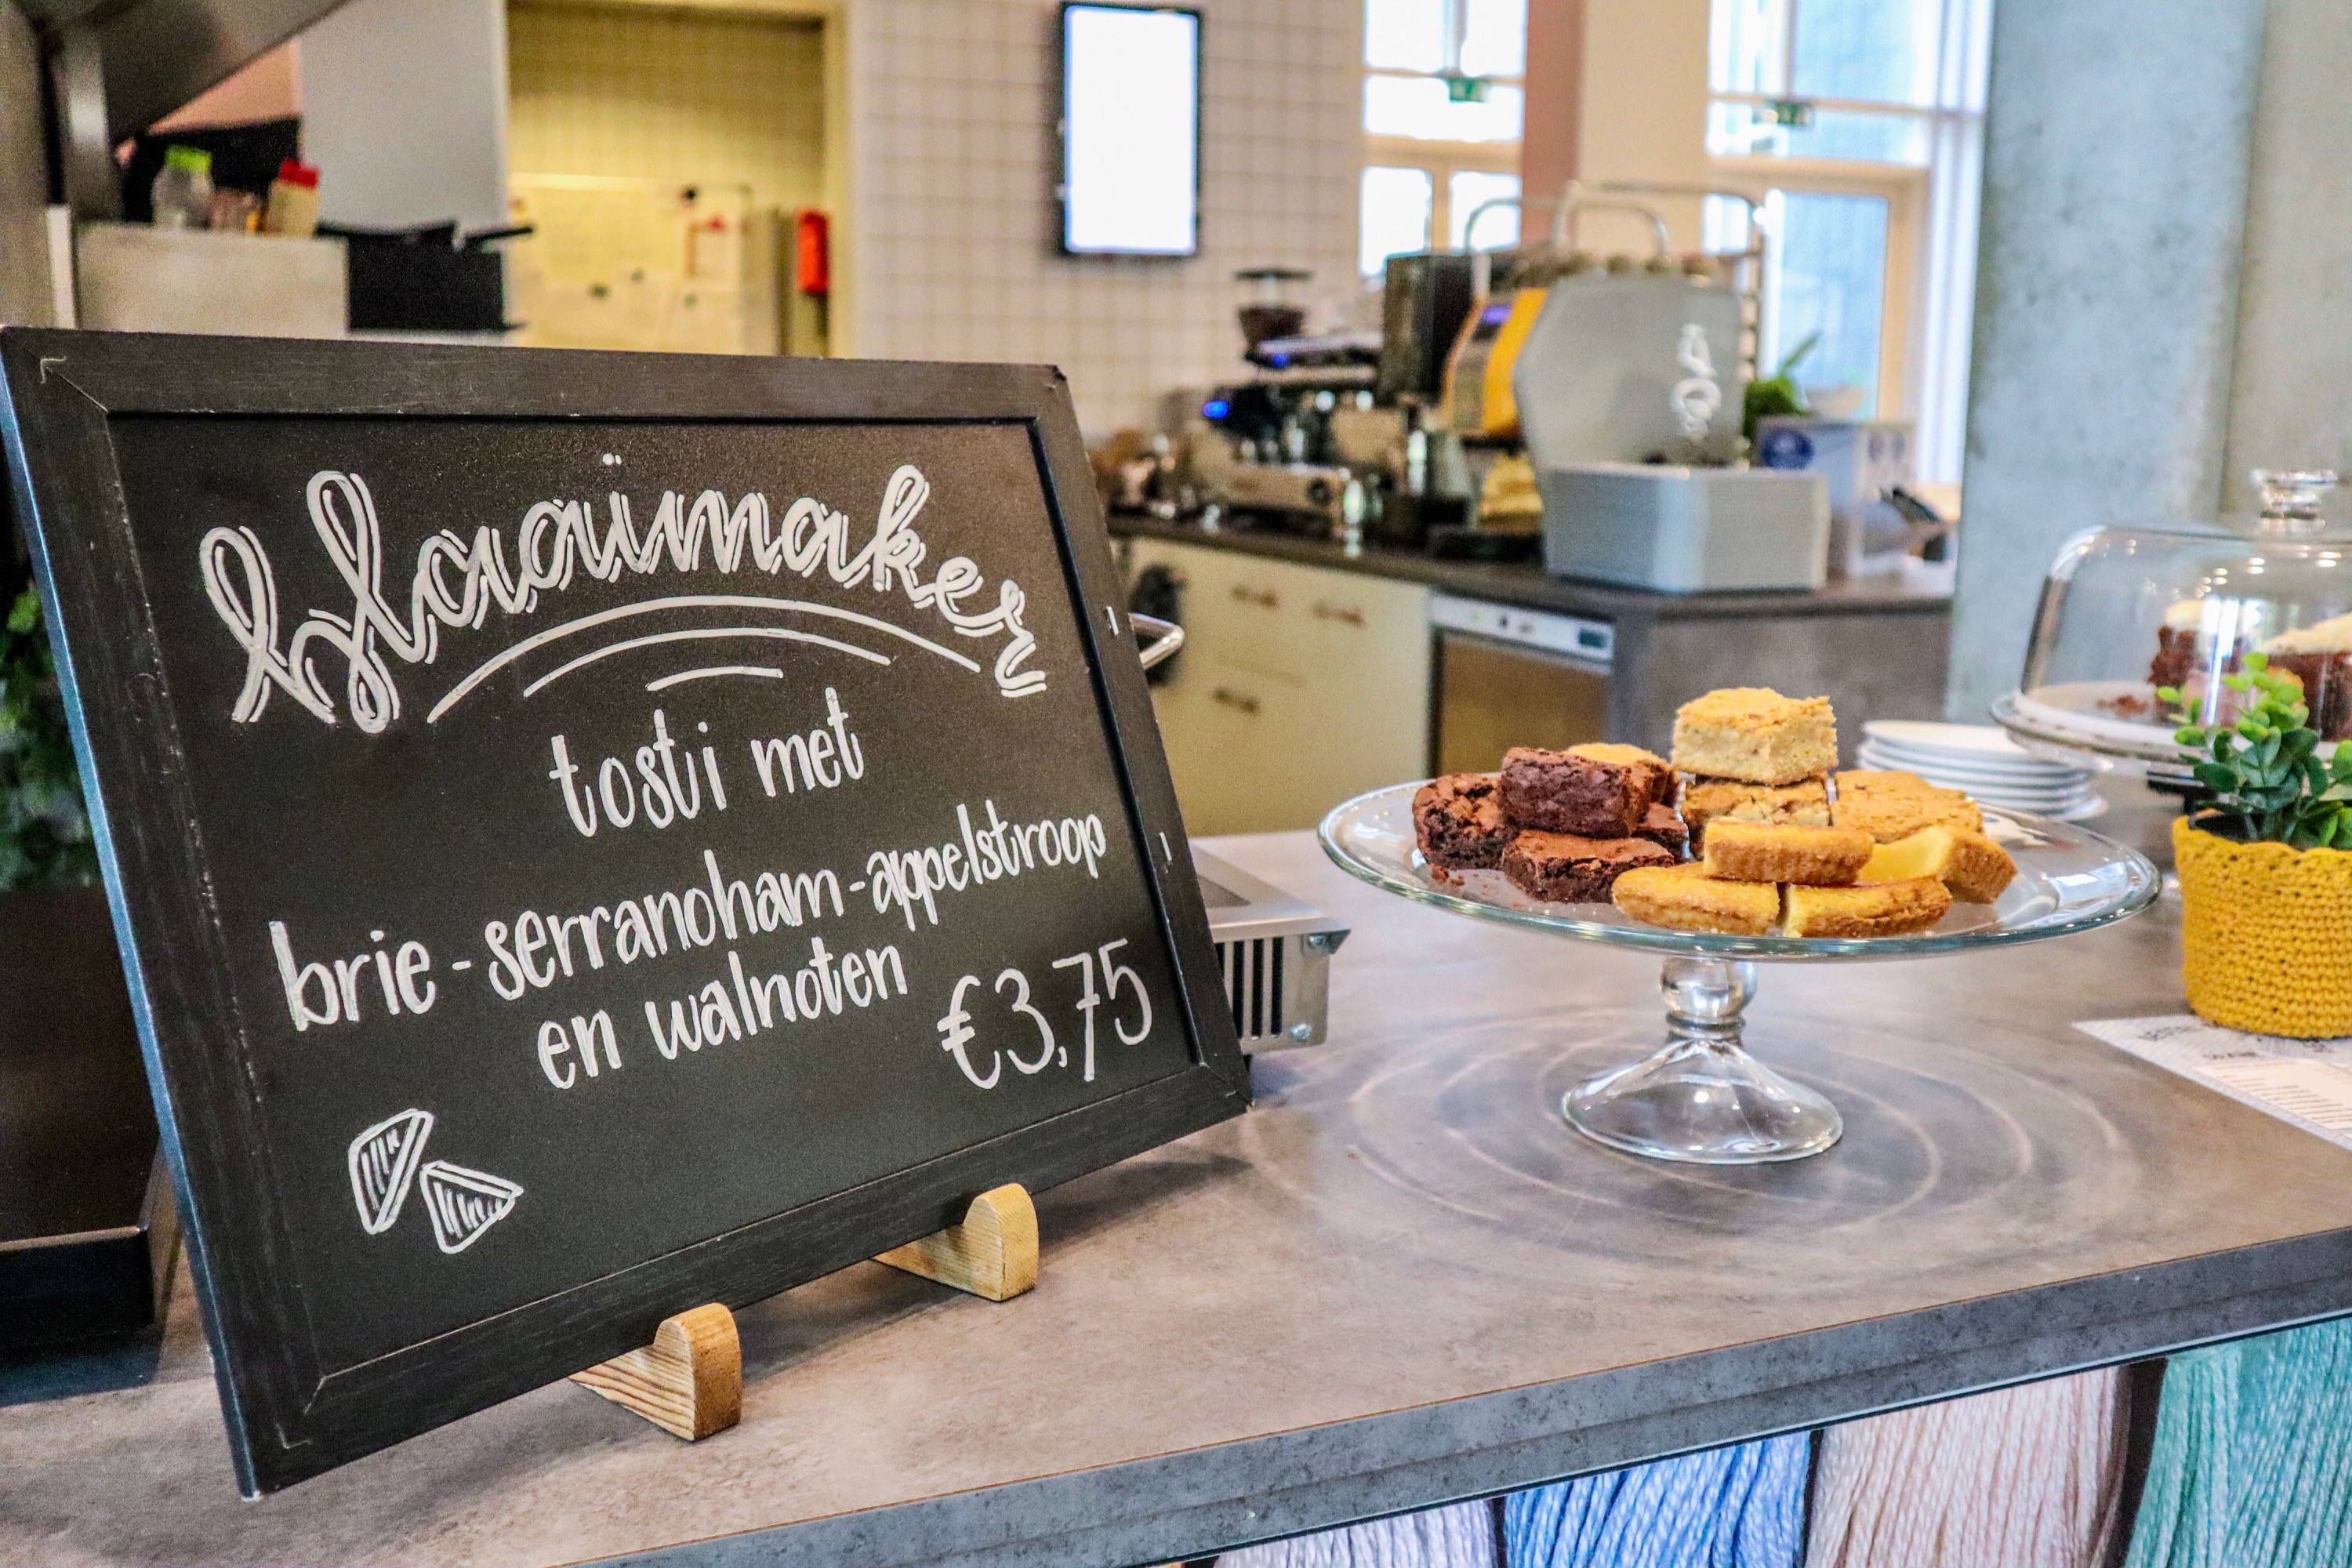 tosti met
brie - serranoham - appelstroop
en walnoten
€3,75